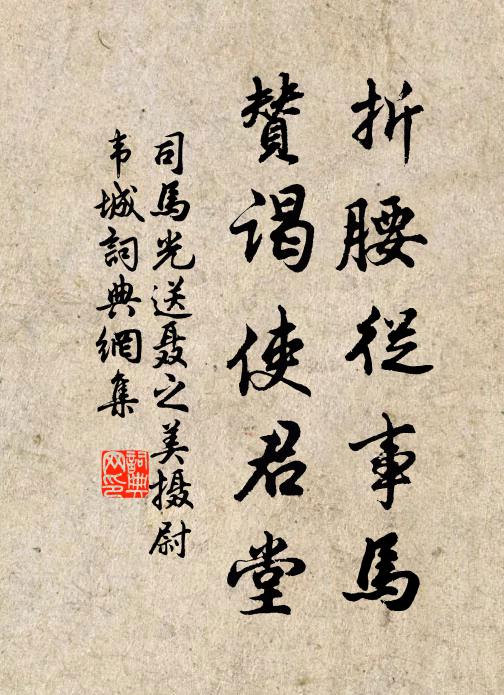 折腰從事馬
贊谒使君堂
司馬光送聂之美摄尉
韦城詞典網集
詞典网印